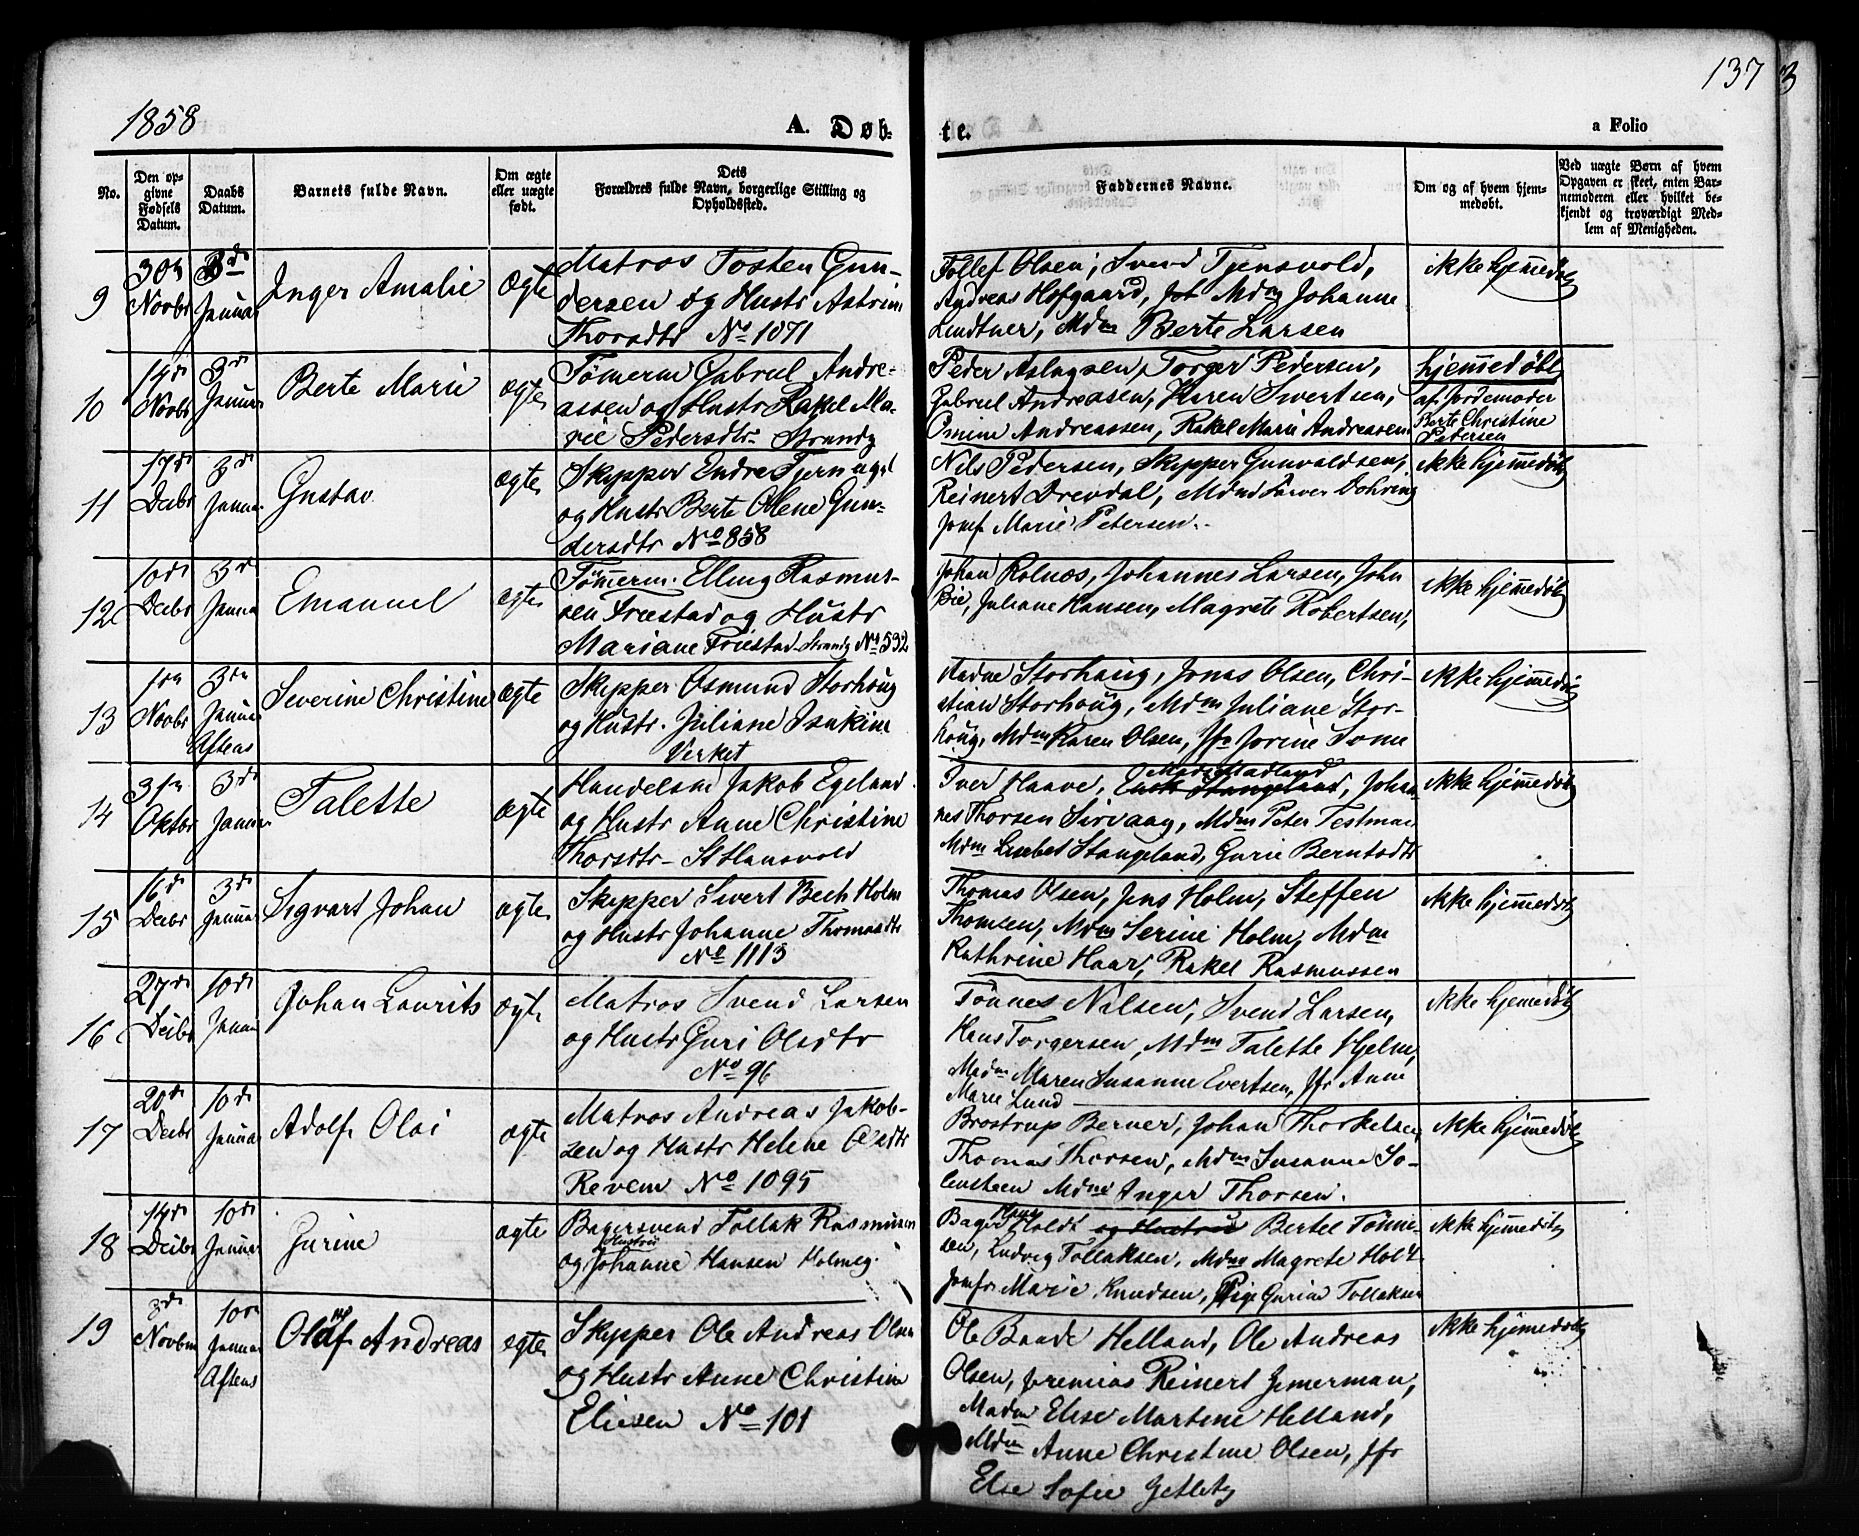 1858
A. Døb-
te.
137
3
a Folio
No.
Den op-
givne
Fødsels
Datum.
Daabs
Datum.
Barnets fulde Navn.
Om ægte
eller uægte
født.
Dets
Forældres fulde Navn, borgerlige Stilling og
Opholdssted.
Faddernes Navne.
Om og af hvem hjem-
medøbt.
Ved uægte Børn af hvem
Opgaven er skeet, enten Bar-
nemoderen eller hvilket be-
kjendt og troværdigt Med-
lem af Menigheden.
9
30n Novbr
3de Januar
Inger Amalie
Ægte
Matros Tosten Gun-
dersen og Hustr Astrim
Thorsdtr No 1071
Tollef Olsen, Svend Tjensvold,
Andreas Hofgaard, Mdm Johanne
Lindtner, Mdm Berte Larsen
ikke hjemmedøbt
10
14de Novbr
3de Januar
Berte Marie
ægte
Tømerm Gabriel Andre-
assen og Hustr Rakel Ma-
rie Pedersdtr Strandg
Peder Aslagsen, Torger Pedersen,
Gabriel Andreasen, Karen Sivertsen,
Omine Andreassen, Rakel Marie Andreasen
hjemmedøbt
af Jordemoder
Berte Christine
Pedersen
11
17de Decbr
3de Januar
Gustav
ægte
Skipper Endre Tjernagel
og Hustr Berte Olene Gun-
dersdtr No 858
Nils Pedersen, Skipper Gunvaldsen,
Reinert Drevdal, Mdm Farver Dohring
Jomf Marie Petersen.
ikke hjemmedøbt
12
10de Decbr
3de Januar
Emanuel
ægte
Tømmerm. Elling Rasmus-
sen Friestad og Hustr
Mariane Friestad Strandg No 532
Johan Rolnæs, Johannes Larsen, John
Bie, Juliane Hansen, Magrete Robertsen,
ikke hjemmedøbt
13
1en Novbr
3en Januar
Aftens
Severine Christine
ægte
Skipper Osmund Storhoug
og Hustr. Juliane Isakine
Verket
Aadne Storhaug, Jonas Olsen, Chri-
stian Storhoug, Mdm Juliane Stor-
houg, Mdm Karen Olsen, Jfr Jorine Some
ikke hjemmedøbt
14
31n Oktbr
3de Januar
Talette
ægte
Handelsm Jakob Egeland
og Hustr Anne Christine
Thorsdtr St Hansvold
Mads Madland
Iver Haave, Stangeland, Johan-
nes Thorsen Sirvaag, Mdm Peter Testman
Mdm Lisebet Stangeland, Gurie Berntsdtr
ikke hjemmedøbt
15
16de Decbr
3de Januar
Sigvart Johan
ægte
Skipper Sivert Bech Holm
og Hustr Johanne Thomasdtr
No 1113
Thomas Olsen, Jens Holm, Steffen
Thomsen, Mdm Serine Holm, Mdm
Kathrine Haar, Rakel Rasmussen
ikke hjemmedøbt
16
27de Decbr
10de Januar
Johan Laurits
ægte
Matros Svend Larsen
og Hustr Guri Olsdtr
No 96
Tønnes Nilsen, Svend Larsen,
Hans Torgersen, Mdm Talette Hjelm,
Madm Maren Susanne Evertsen, Jfr Anne
Marie Lund
ikke hjemmedøbt
17
20de Decbr
10de Januar
Adolf Olai
ægte
Matros Andreas Jakob-
sen og Hustr Helene Olsdtr
Revem No 1095
Brostrup Berner, Johan Thorkelsen,
Thomas Thorsen, Mdm Susanne So-
lensteen Mdm Inger Thorsen.
ikke hjemmedøbt
18
14de Decbr
10de Januar
Gurine
ægte
Bagersvend Tollak Rasmusen
Hustru
og Johanne Hansen Holmeg.
Hans
Bager Holdt og Hustru Bertel Tønne-
sen, Ludvig Tollaksen, Mdm Magrete Holdt
Jomfr Marie Knudsen, Pige Gurine Tollaksen
ikke hjemmedøbt
19
3de Novbm
10en Januar
Aftens
Oluf Andreas
ægte
Skipper Ole Andreas Olsen
og Hustr Anne Christine
Eliesen No 101
Ole Baade Helland, Ole Andreas
Olsen, Jeremias Reinert Jemerman,
Madm Elise Martine Helland,
Mdm Anne Christine Olsen, Jfr
Else Sofie Jetletz
ikke hjemmedøbt